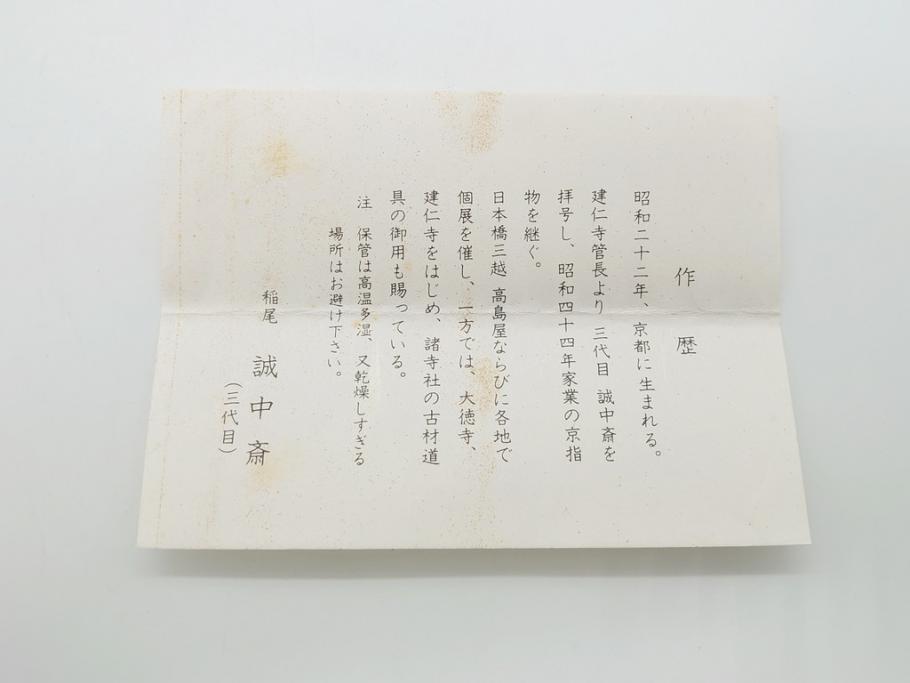 作歴
昭和二十二年、京都に生まれる。
建仁寺管長より 三代目 誠中斎を
拝号し、昭和四十四年家業の京指
物を継ぐ。
日本橋三越 高島屋ならびに各地で
個展を催し、一方では、大徳寺、
建仁寺をはじめ、諸寺社の古材道
具の御用も賜っている。
注 保管は高温多湿、又乾燥しすぎる
場所はお避け下さい。
稲尾 誠中斎
(三代目)